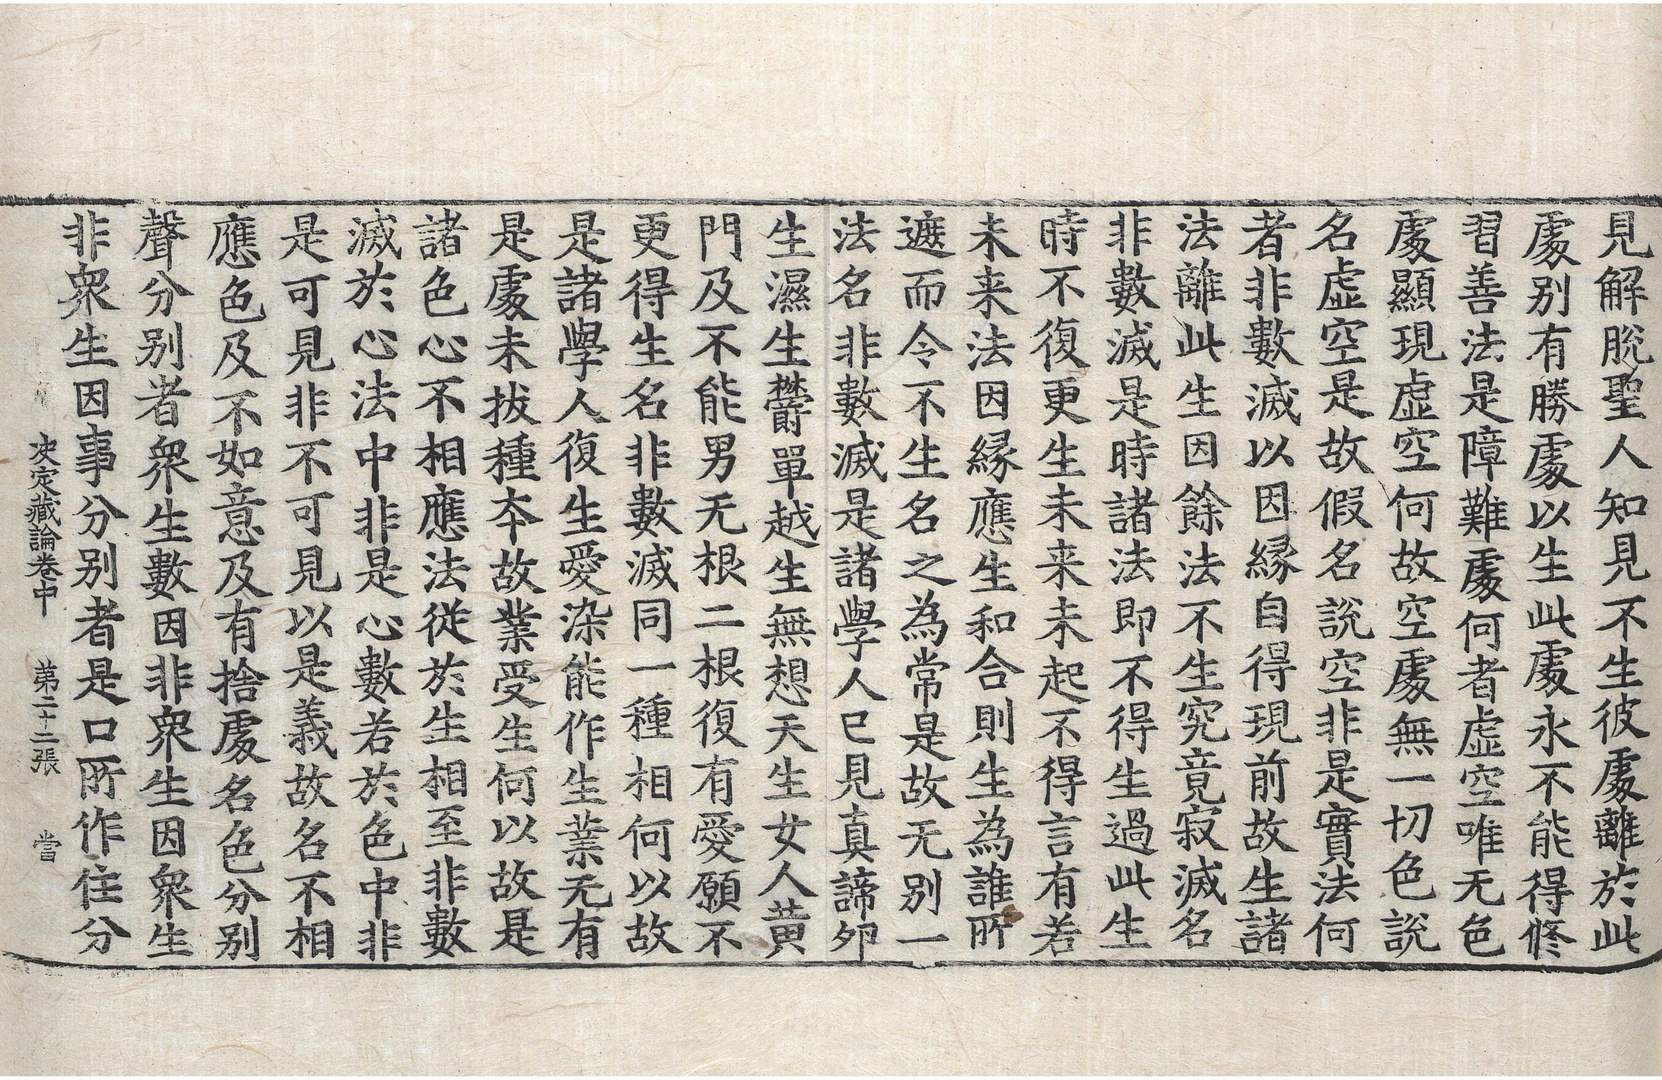 見解脫聖人知見不生彼處離於此
處別有勝處以生此處永不能得修
習善法是障難處何者虛空唯无色
處顯現虛空何故空處無一切色說
名虛空是故假名說空非是實法何
者非數滅以因緣自得現前故生諸
法離此生因餘法不生究竟寂滅名
非數滅是時諸法即不得生過此生
時不復更生未来未起不得言有若
未来法因緣應生和合則生為誰所
遮而令不生名之為常是故无別一
法名非數滅是諸學人已見真諦卵
生濕生欝單越生無想天生女人黃
門及不能男无根二根復有愛願不
更得生名非數滅同一種相何以故
是諸學人復生愛染能作生業无有
是處未拔種本故業受生何以故是
諸色心不相應法從於生相至非數
滅於心法中非是心數若於色中非
是可見非不可見以是義故名不相
應色及不如意及有捨處名色分別
聲分別者衆生數因非衆生因衆生
非衆生因事分別者是口所作住分
决定藏論卷中　第二十二張　當